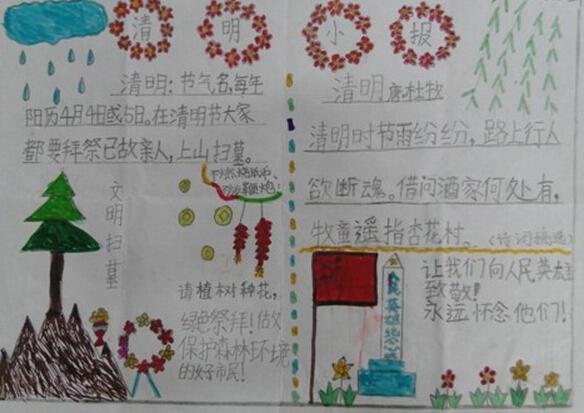 清明小报
清明:节气名,每年
阳历4月4日或5日。在清明节大家
都要拜祭已故亲人,上山扫墓。
文明扫墓
请植树种花,
绿色祭拜!做
保护森林环境
的好市民!
清明 唐.杜牧
清明时节雨纷纷,路上行人
欲断魂。借问酒家何处有,
牧童遥指杏花村。(诗词摘选)
人民英雄纪念碑
让我们向人民英雄
致敬!
永远怀念他们!